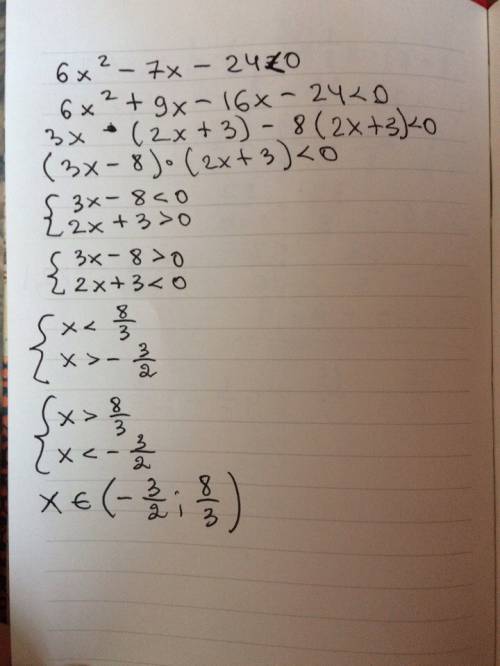 6x² - 7x - 24<0
6x² + 9x - 16x - 24<0
3x · (2x + 3) - 8(2x+3)<0
(3x - 8)·(2x + 3)<0
{ 3x - 8<0
2x + 3>0
{ 3x - 8>0
2x+3<0
{ x < 8/3
x > - 3/2
{ x > 8/3
x < - 3/2
x ∈ (- 3/2 ; 8/3)